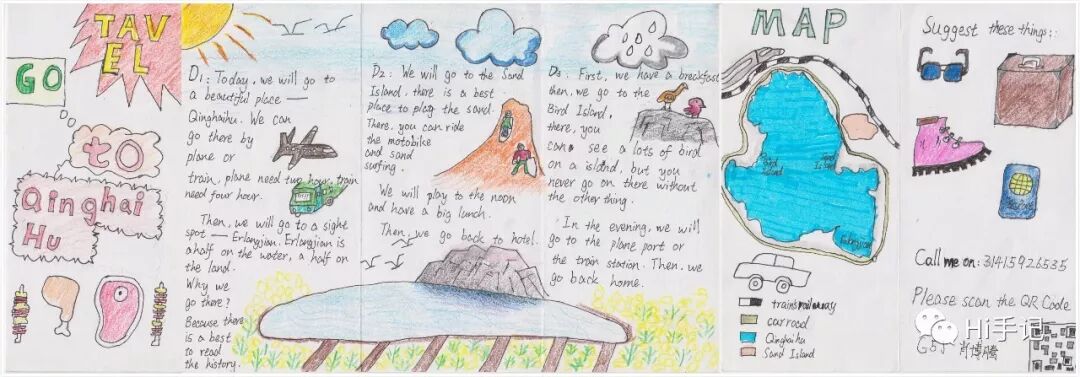 TAV
EL
GO
to
Qinghai
Hu
D1: Today, we will go to
a beautiful place —
Qinghaihu. We can
go there by
plane or
train, plane need two hour, train
need four hour.
Then, we will go to a sight
spot — Erlangjian. Erlangjian is
a half on the water, a half on
the land.
Why we
go there?
Because there
is a best
to read
the history.
D2: We will go to the Sand
Island, there is a best
place to play the sand.
There, you can ride
the motobike
and sand
surfing.
We will play to the noon
and have a big lunch.
Then, we go back to hotel.
D3: First, we have a breakfast
then, we go to the
Bird Island,
there, you
can see a lots of bird
on a island, but you
never go on there without
the other thing.
In the evening, we will
go to the plane port or
the train station. Then, we
go back home.
MAP
Bird
Island
Erlangjian
train's railway
car road
Qinghaihu
Sand Island
Suggest these things:
Call me on: 31415926535
Please scan the QR Code
肖博腾
Hi手记